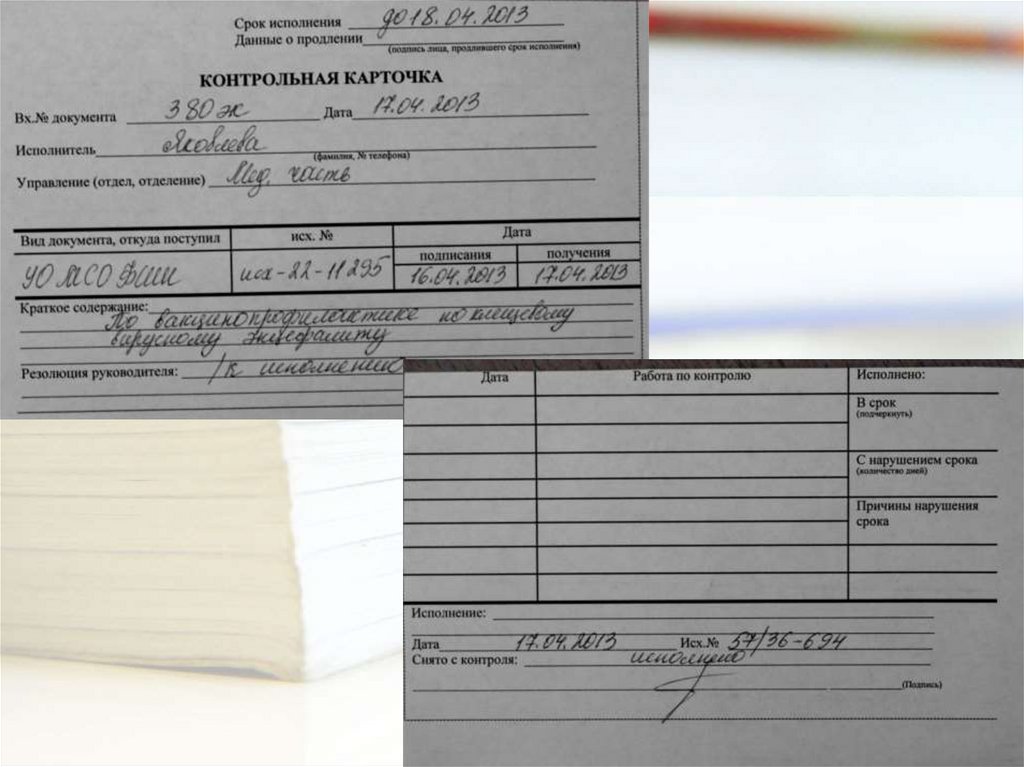 Срок исполнения до 18.04.2013
Данные о продлении
(подпись лица, продлившего срок исполнения)
КОНТРОЛЬНАЯ КАРТОЧКА
Вх.№ документа 380эж Дата 17.04.2013
Исполнитель Яковлева
(фамилия, № телефона)
Управление (отдел, отделение) Мед. часть
Вид документа, откуда поступил исх. № Дата
подписания получения
УОМСО ФСИН исх-22-11295 16.04.2013 17.04.2013
Краткое содержание:
По вакцинопрофилактике по клещевому
вирусному энцефалиту
Резолюция руководителя: /к исполнению
Дата Работа по контролю Исполнено:
В срок
(подчеркнуть)
С нарушением срока
(количество дней)
Причины нарушения
срока
Исполнение:
Дата 17.04.2013 Исх.№ 57/36-694
Снято с контроля: исполнено
(Подпись)